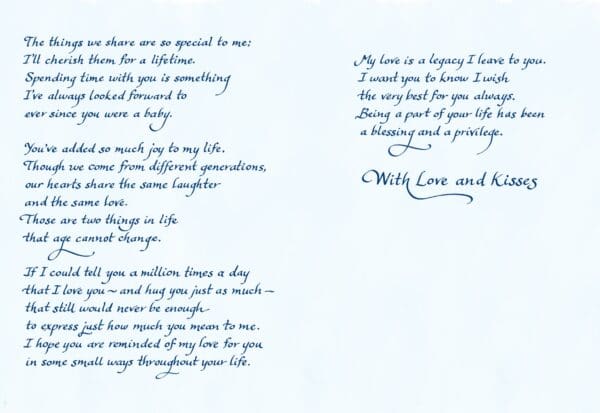 The things we share are so special to me;
I'll cherish them for a lifetime.
Spending time with you is something
I've always looked forward to
ever since you were a baby.
You've added so much joy to my life.
Though we come from different generations,
our hearts share the same laughter
and the same love.
Those are two things in life
that age cannot change.
If I could tell you a million times a day
that I love you ~ and hug you just as much ~
that still would never be enough
to express just how much you mean to me.
I hope you are reminded of my love for you
in some small ways throughout your life.
My love is a legacy I leave to you.
I want you to know I wish
the very best for you always.
Being a part of your life has been
a blessing and a privilege.
With Love and Kisses